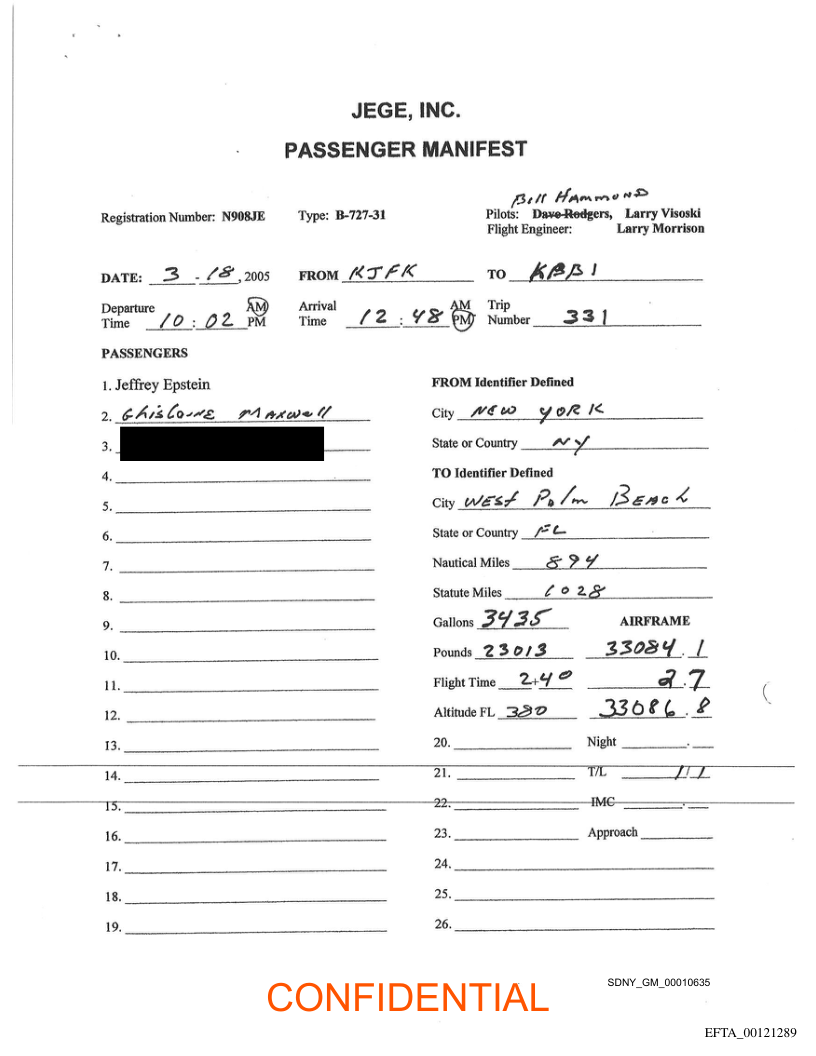 JEGE, INC.
PASSENGER MANIFEST
Bill Hammond
Registration Number: N908JE Type: B-727-31 Pilots: Dave Rodgers, Larry Visoski
Flight Engineer: Larry Morrison
DATE: 3 - 18, 2005 FROM KJFK TO KPBI
Departure Time 10 : 02 AM PM Arrival Time 12 : 48 AM PM Trip Number 331
PASSENGERS
1. Jeffrey Epstein FROM Identifier Defined
2. Ghislaine Maxwell City NEW YORK
3. State or Country NY
4. TO Identifier Defined
5. City WEST Palm BEACH
6. State or Country FL
7. Nautical Miles 894
8. Statute Miles 1028
9. Gallons 3435 AIRFRAME
10. Pounds 23013 33084.1
11. Flight Time 2+40 2.7
12. Altitude FL 380 33086.8
13. 20. Night .
14. 21. T/L 1/1
15. 22. IMC .
16. 23. Approach
17. 24.
18. 25.
19. 26.
SDNY_GM_00010635
CONFIDENTIAL
EFTA_00121289